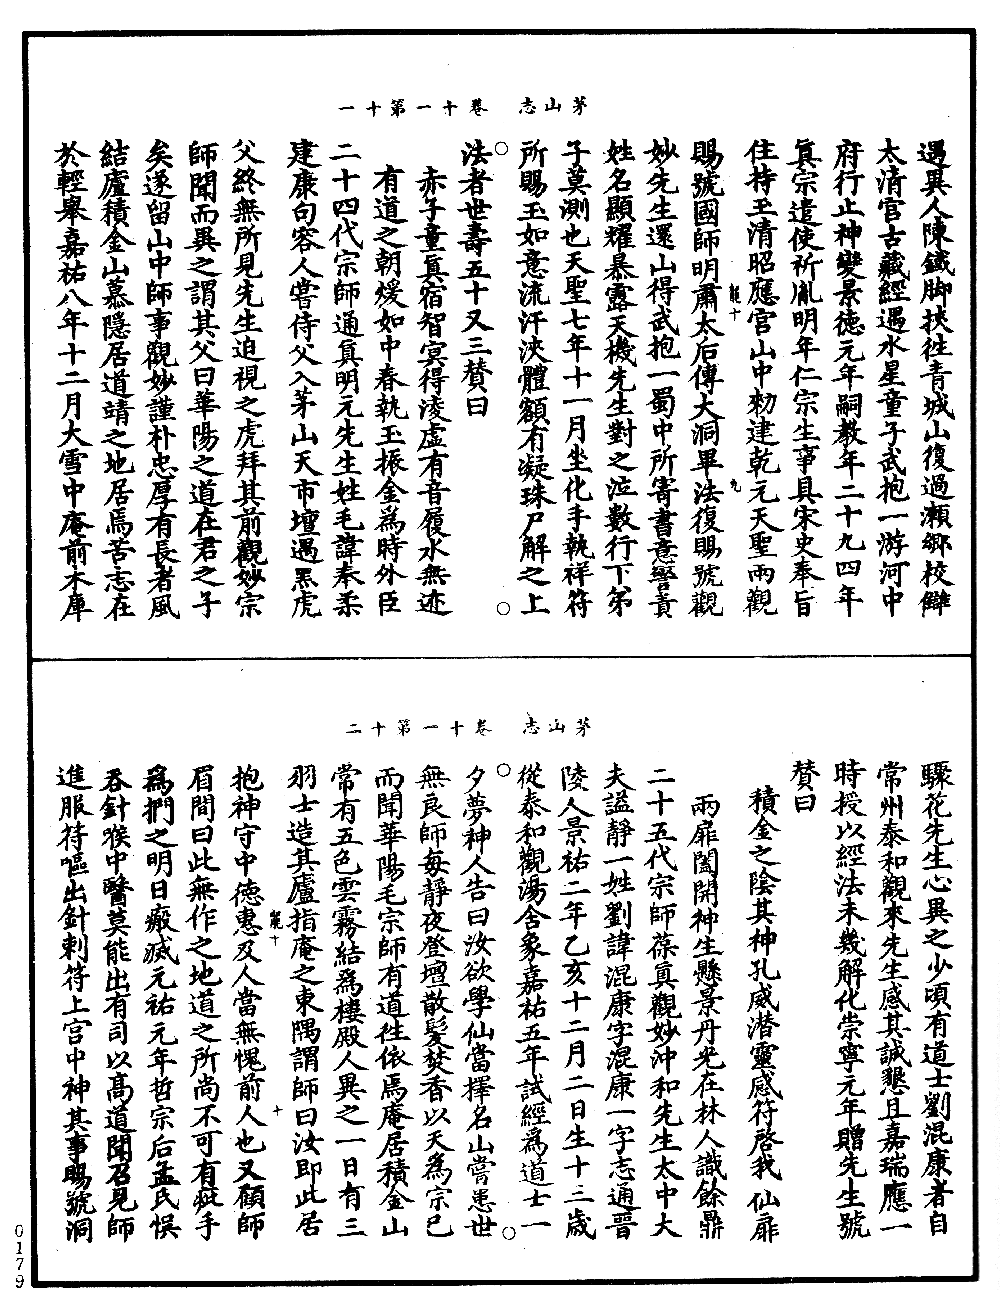 茅山志　卷十一第十一
遇異人陳鐵脚挾往青城山復過瀨鄉校讎
太清宫古藏經遇水星童子武抱一游河中
府行止神變景德元年嗣教年二十九四年
真宗遣使祈胤明年仁宗生事具宋史奉旨
住持玉清昭應宫山中勑建乾元天聖兩觀
賜號國師明肅太后傳大洞畢法復賜號觀
妙先生還山得武抱一蜀中所寄書意警責
姓名顯耀暴露天機先生對之泣數行下弟
子莫測也天聖七年十一月坐化手執祥符
所賜玉如意流汗浹體額有凝珠尸解之上
法者世壽五十又三賛曰
赤子童真宿智冥得淩虚有音履水無迹
有道之朝煖如中春執玉振金爲時外臣
二十四代宗師通真明元先生姓毛諱奉柔
建康句容人嘗侍父入茅山天市壇遇黑虎
父終無所見先生迫視之虎拜其前觀妙宗
師聞而異之謂其父曰華陽之道在君之子
矣遂留山中師事觀妙謹朴忠厚有長者風
結廬積金山慕隱居道靖之地居焉苦志在
於輕舉嘉祐八年十二月大雪中庵前木犀
茅山志　卷十一第十二
驟花先生心異之少頃有道士劉混康者自
常州泰和觀來先生感其誠懇且嘉瑞應一
時授以經法未幾解化崇寧元年贈先生號
賛曰
積金之陰其神孔威潜靈感符啓我仙扉
兩扉闔開神生懸景丹光在林人識餘鼎
二十五代宗師葆真觀妙沖和先生太中大
夫謚靜一姓劉諱混康字混康一字志通晋
陵人景祐二年乙亥十二月二日生十三歲
從泰和觀湯含象嘉祐五年試經爲道士一
夕夢神人告曰汝欲學仙當擇名山嘗患世
無良師每靜夜登壇散髮焚香以天爲宗已
而聞華陽毛宗師有道徃依焉庵居積金山
常有五色雲霧結爲樓殿人異之一日有三
羽士造其廬指庵之東隅謂師曰汝即此居
抱神守中德惠及人當無愧前人也又顧師
眉間曰此無作之地道之所尚不可有疵手
爲捫之明日瘢滅元祐元年哲宗后孟氏悞
吞針喉中醫莫能出有司以髙道聞召見師
進服符嘔出針刺符上宫中神其事賜號洞
0179